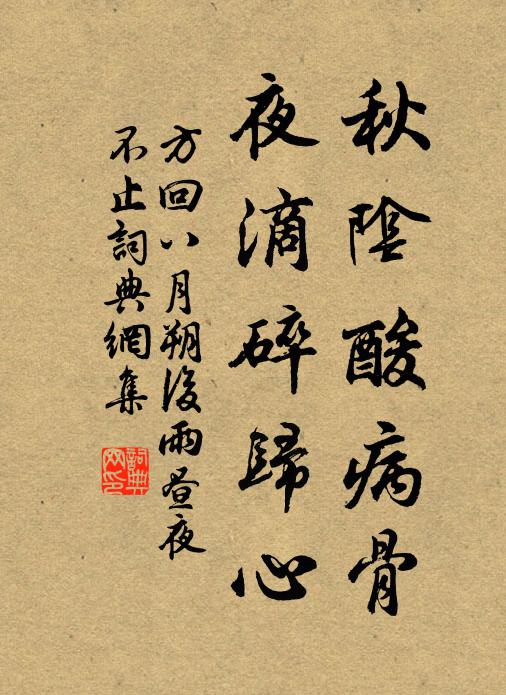 秋陰酸病骨
夜滴碎歸心
方回八月朔後雨晝夜
不止詞典網集
詞典
網印